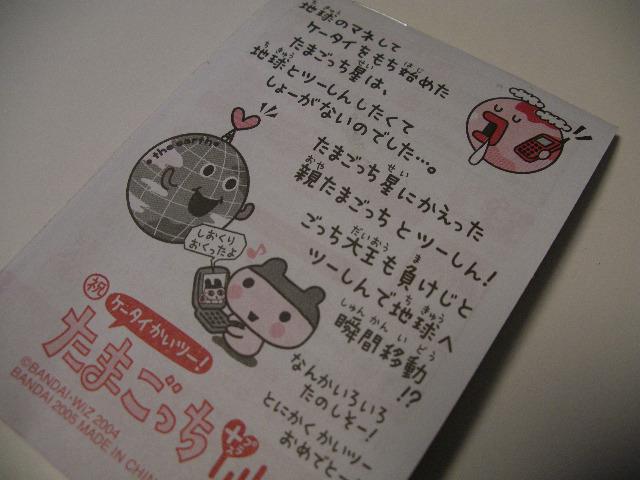 地球のマネして
ケータイをもち始めた
たまごっち星は、
地球とツーしんしたくて
しょーがないのでした…。
the earth
たまごっち星にかえった
親たまごっちとツーしん!
ごっち大王も負けじと
ツーしんで地球へ
瞬間移動!?
しおくり
おくったよ
なんかいろいろ
たのしそー!
とにかくかいツー
おめでとー
祝
ケータイかいツー!
たまごっち
プラス
©BANDAI・WiZ 2004
BANDAI 2005 MADE IN CHIN